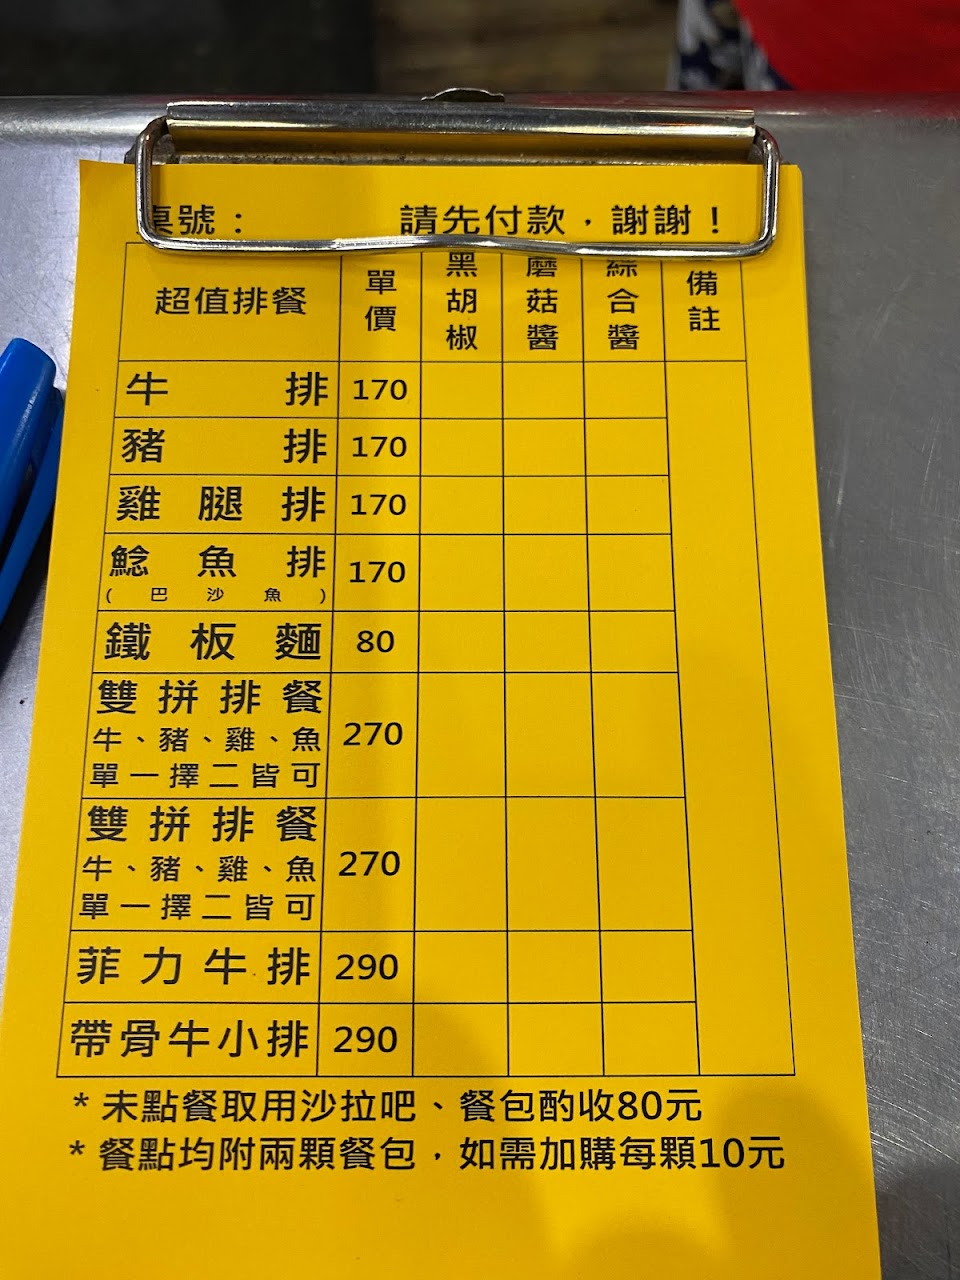 桌號： 請先付款，謝謝！
超值排餐 單價 黑胡椒 蘑菇醬 綜合醬 備註
牛排 170
豬排 170
雞腿排 170
鯰魚排 170
(巴沙魚)
鐵板麵 80
雙拼排餐 270
牛、豬、雞、魚
單一擇二皆可
雙拼排餐 270
牛、豬、雞、魚
單一擇二皆可
菲力牛排 290
帶骨牛小排 290
* 未點餐取用沙拉吧、餐包酌收80元
* 餐點均附兩顆餐包，如需加購每顆10元